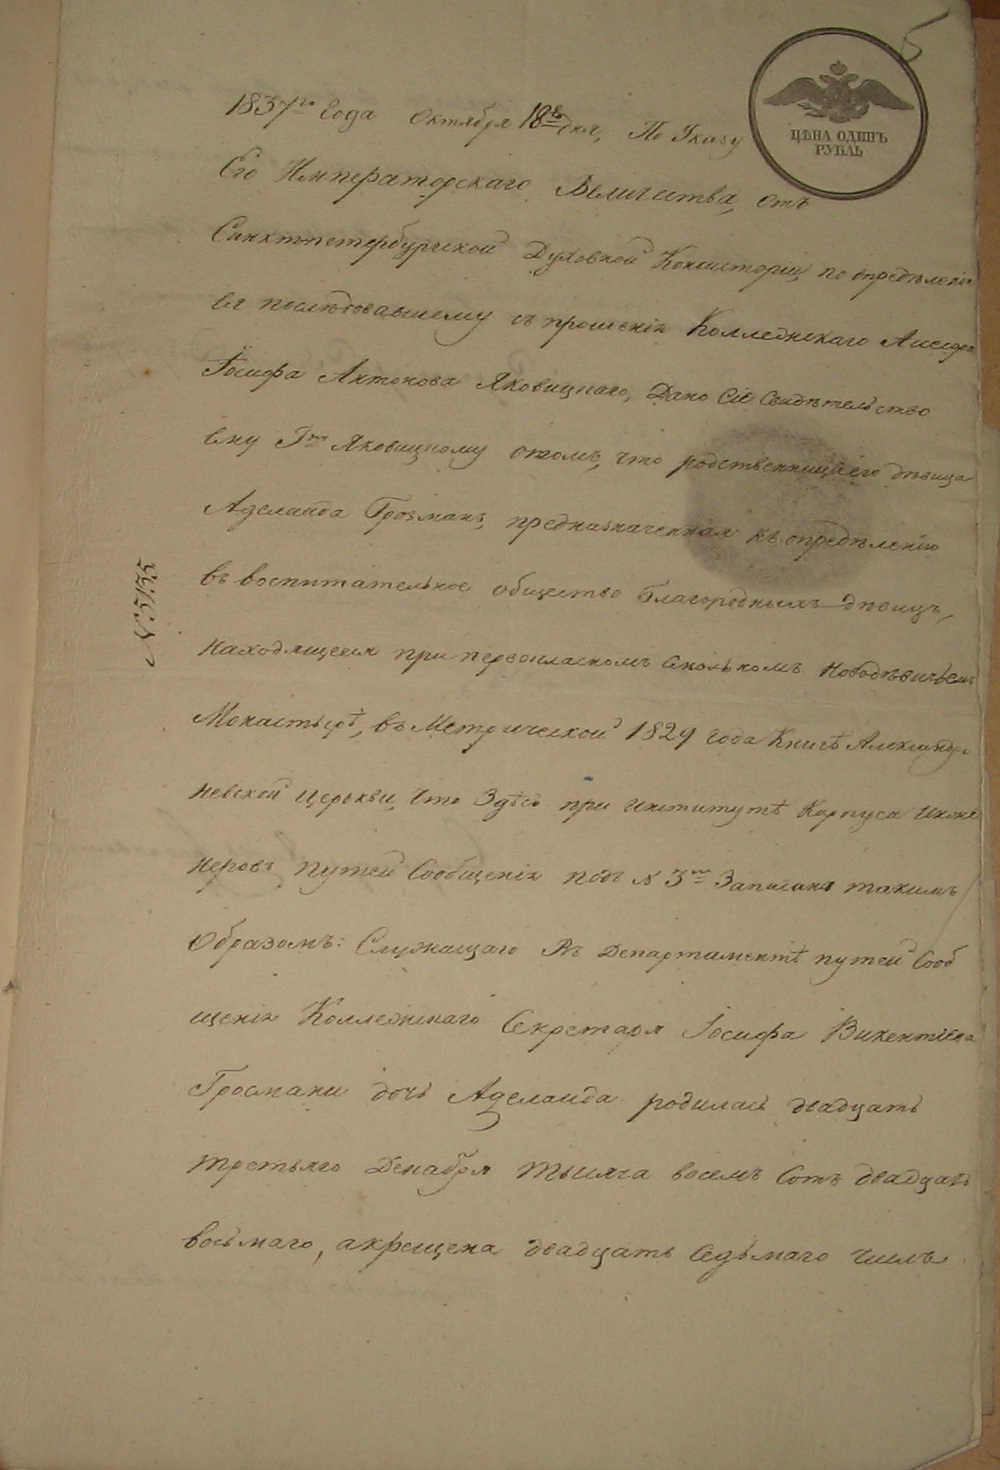 5
ЦѢНА ОДИНЪ
РУБЛЬ
1837го Года Октября 18го дня, По Указу
Его Императорскаго Величества, отъ
Санктпетербургской Духовной Консисторіи, по опредѣленію
ея послѣдовавшему съ прошенія Коллежскаго Ассесора
Іосифа Антонова Яковицкаго, Дано Сіе Свидѣтельство
ему Гну Яковицкому отомъ, что родственница его дѣвица
Аделаида Грозманъ, предназначенная къ опредѣленію
въ воспитательное общество благородныхъ дѣвицъ,
находящееся при первоклассномъ Смольномъ Новодѣвичьемъ
Монастырѣ, въ Метрической 1829 года Книгѣ Александро
невской церькви, что Здѣсь при институтѣ Корпуса Инже
неровъ путей Сообщенія подъ N 3мъ Записана такимъ
Образомъ: Служащаго Въ Департаментѣ путей Сооб
щенія Коллежскаго Секретаря Іосифа Викентіева
Гросмани дочь Аделаида родилась двадцать
третьяго Декабря тысяча восемь Сотъ двадцать
восьмаго, акрещена двадцать Седьмаго числъ
№ 5155